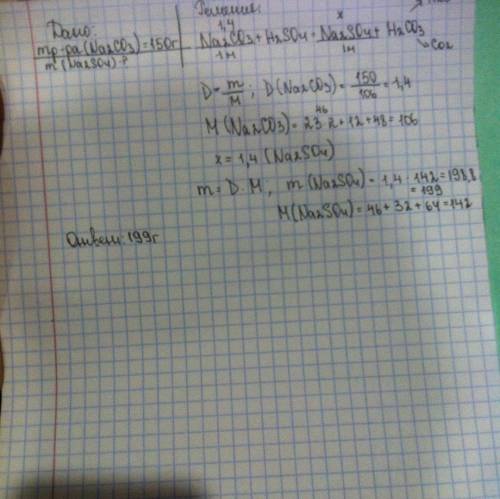 Дано:
mр-ра(Na2CO3)=150г
m(Na2SO4)-?
Решение:
1,4 x
Na2CO3 + H2SO4 = Na2SO4 + H2CO3
1м 1м
CO2
D = m/M; D(Na2CO3) = 150/106 = 1,4
46
M(Na2CO3) = 23·2+12+48=106
x = 1,4 (Na2SO4)
m = D·M, m(Na2SO4) = 1,4·142=198,8
= 199
M(Na2SO4) = 46+32+64=142
Ответ: 199г